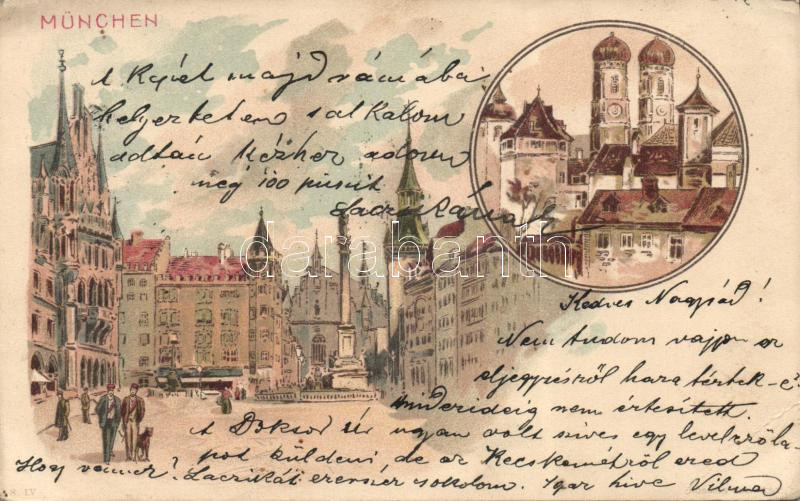 MÜNCHEN
A Képet majd rámába
helyezteten s alkalom
adtán kézhez adom
még 100 puszit
darabanth.com
Kedves Nagysád!
Nem tudom vajjon az
eljegyzésről haza tértek-é
mindezideig nem értesített.
A Doktor Úr ugyan volt szíves egy levelezőla-
pot küldeni, de az Kecskemétről ered
Hogy vannak? Laczikát ezerszer csókolom. Igaz híve Vilma